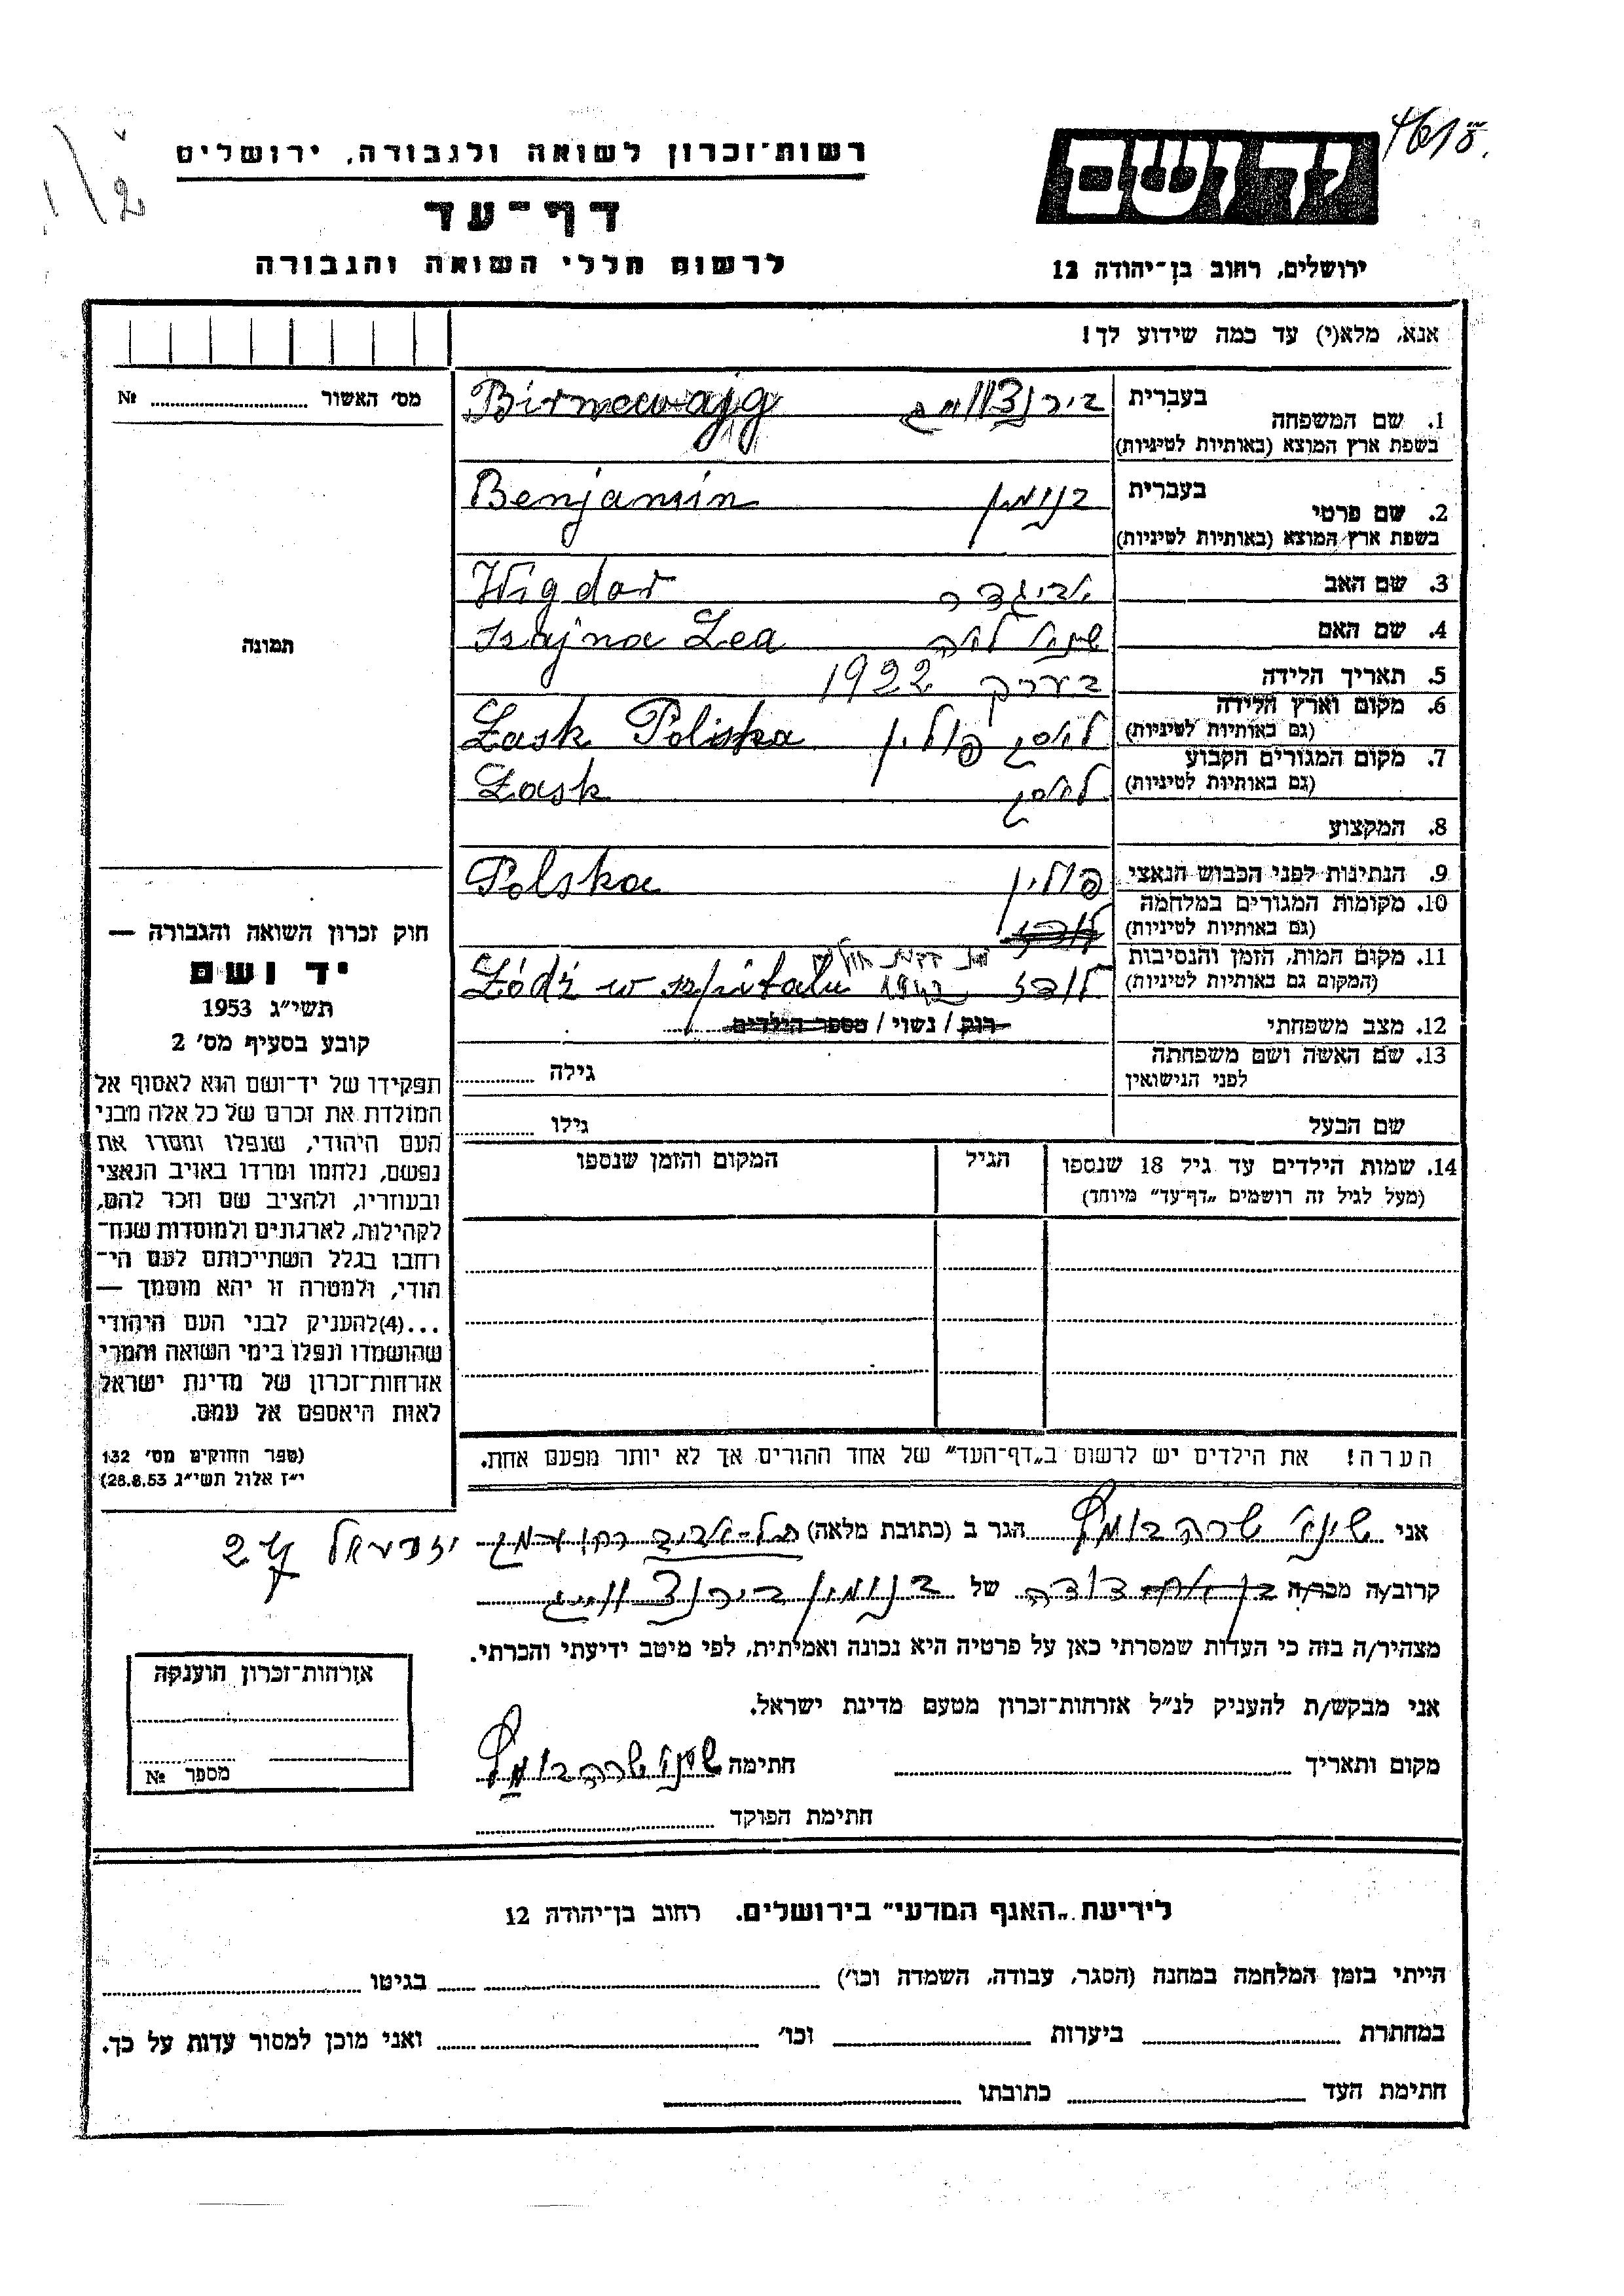 46/18
רשות־זכרון לשואה ולגבורה, ירושלים
דף־עד
לרשום חללי השואה והגבורה
יד ושם
ירושלים, רחוב בן־יהודה 12
אנא, מלא(י) עד כמה שידוע לך!
מס׳ האשור № 
1. שם המשפחה
בעברית בירנצווייג
בשפת ארץ המוצא (באותיות לטיניות) Birncwajg
2. שם פרטי
בעברית בנימין
בשפת ארץ המוצא (באותיות לטיניות) Benjamin
3. שם האב אביגדר Wigdor
4. שם האם שינא לאה Szajna Lea
5. תאריך הלידה בערך 1922
6. מקום וארץ הלידה
(גם באותיות לטיניות) לאסק פולין Łask Polska
7. מקום המגורים הקבוע
(גם באותיות לטיניות) לאסק Łask
8. המקצוע
9. הנתינות לפני הכבוש הנאצי פולין Polska
10. מקומות המגורים במלחמה
(גם באותיות לטיניות) לודז
11. מקום המות, הזמן והנסיבות
(המקום גם באותיות לטיניות) לודז 1942 Łódź w szpitalu
12. מצב משפחתי רווק / נשוי / מספר הילדים
13. שם האשה ושם משפחתה
לפני הנישואין גילה
שם הבעל גילו
14. שמות הילדים עד גיל 18 שנספו
(מעל לגיל זה רושמים „דף־עד״ מיוחד)
הגיל
המקום והזמן שנספו
תמונה
חוק זכרון השואה והגבורה —
יד ושם
תשי״ג 1953
קובע בסעיף מס׳ 2
תפקידו של יד־ושם הוא לאסוף אל
המולדת את זכרם של כל אלה מבני
העם היהודי, שנפלו ומסרו את
נפשם, נלחמו ומרדו באויב הנאצי
ובעוזריו, ולהציב שם וזכר להם,
לקהילות, לארגונים ולמוסדות שנח־
רחבו בגלל השתייכותם לעם הי־
הודי, ולמטרה זו יהא מוסמך —
...(4)להעניק לבני העם היהודי
שהושמדו ונפלו בימי השואה והמרי
אזרחות־זכרון של מדינת ישראל
לאות היאספם אל עמם.
(ספר החוקים מס׳ 132
י״ז אלול תשי״ג 28.8.53)
הערה! את הילדים יש לרשום ב„דף־העד״ של אחד ההורים אך לא יותר מפעם אחת.
אני שרה הגר ב (כתובת מלאה) תל־אביב יזרעאל 27
קרוב/ה מכר/ה דודה של בנימין בירנצווייג
מצהיר/ה בזה כי העדות שמסרתי כאן על פרטיה היא נכונה ואמיתית, לפי מיטב ידיעתי והכרתי.
אני מבקש/ת להעניק לנ״ל אזרחות־זכרון מטעם מדינת ישראל.
מקום ותאריך חתימה שרה
חתימת הפוקד
אזרחות־זכרון הוענקה
מספר №
לידיעת „האגף המדעי״ בירושלים. רחוב בן־יהודה 12
הייתי בזמן המלחמה במחנה (הסגר, עבודה, השמדה וכו׳) בגיטו
במחתרת ביערות וכו׳ ואני מוכן למסור עדות על כך.
חתימת העד כתובתו